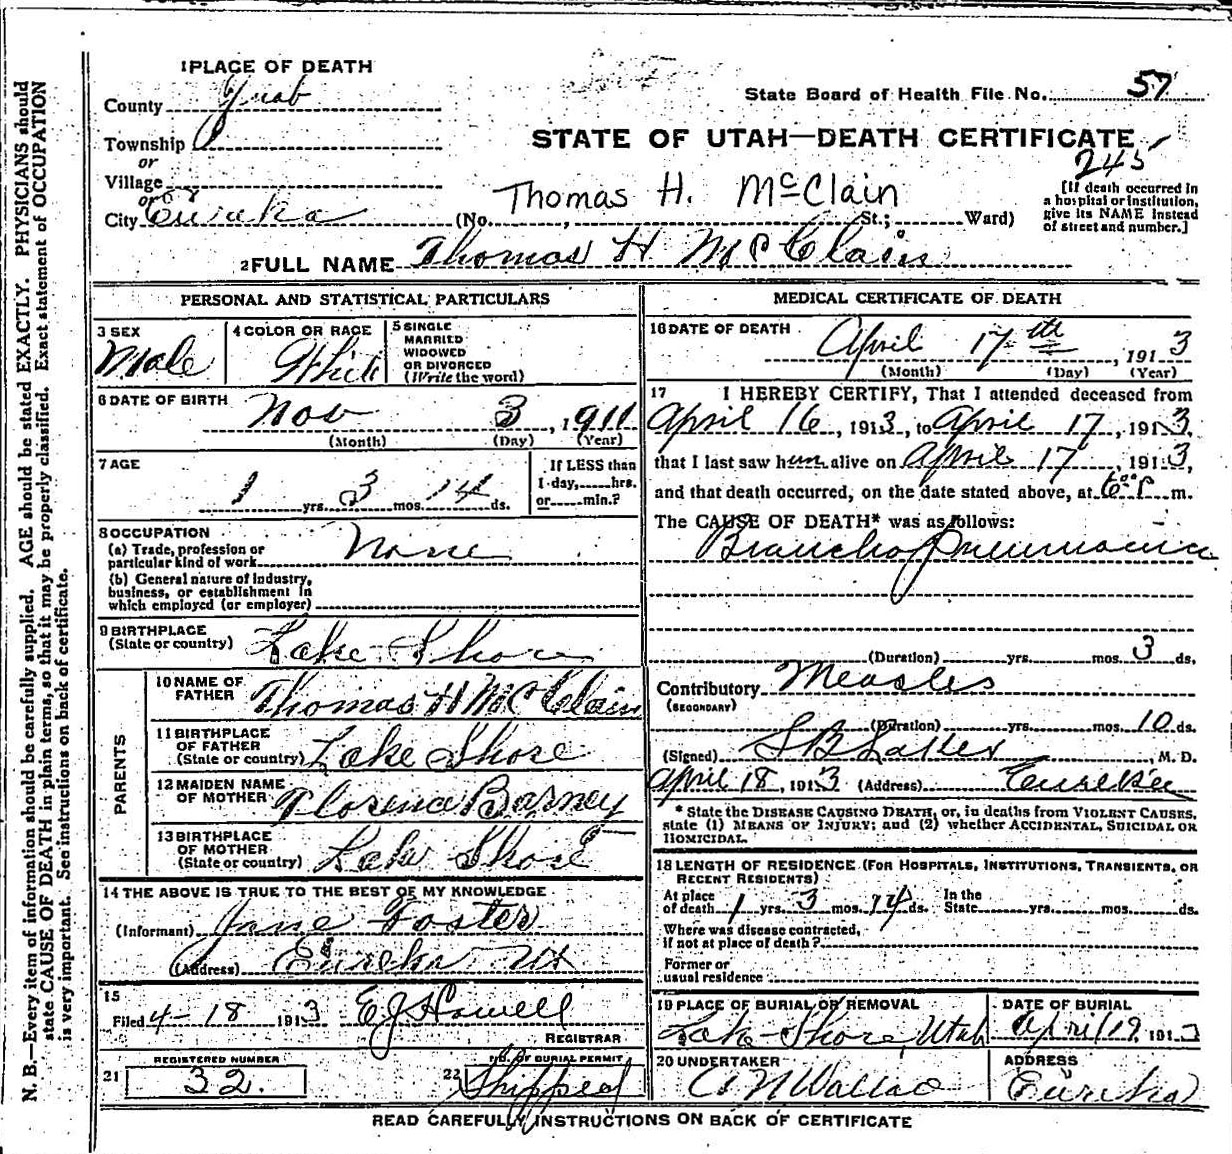 1 PLACE OF DEATH
County Juab
Township
or
Village
or
City Eureka
State Board of Health File No. 57
STATE OF UTAH—DEATH CERTIFICATE
245
[If death occurred in
a hospital or institution,
give its NAME instead
of street and number.]
Thomas H. McClain
(No. , St.; Ward)
2 FULL NAME Thomas H McClain
PERSONAL AND STATISTICAL PARTICULARS
3 SEX
Male
4 COLOR OR RACE
White
5 SINGLE
MARRIED
WIDOWED
OR DIVORCED
(Write the word)
6 DATE OF BIRTH
Nov 3, 1911
(Month) (Day) (Year)
7 AGE
1 yrs. 3 mos. 14 ds.
If LESS than
1 day, hrs.
or min.?
8 OCCUPATION
(a) Trade, profession or
particular kind of work None
(b) General nature of industry,
business, or establishment in
which employed (or employer)
9 BIRTHPLACE
(State or country) Lake Shore
PARENTS
10 NAME OF
FATHER Thomas H McClain
11 BIRTHPLACE
OF FATHER
(State or country) Lake Shore
12 MAIDEN NAME
OF MOTHER Florence Barney
13 BIRTHPLACE
OF MOTHER
(State or country) Lake Shore
14 THE ABOVE IS TRUE TO THE BEST OF MY KNOWLEDGE
(Informant) Jane Foster
(Address) Eureka Ut
15
Filed 4-18 1913 E J Howell
REGISTRAR
REGISTERED NUMBER
21 32.
NO. OF BURIAL PERMIT
22 Shipped
MEDICAL CERTIFICATE OF DEATH
16 DATE OF DEATH
April 17th, 1913
(Month) (Day) (Year)
17 I HEREBY CERTIFY, That I attended deceased from
April 16, 1913, to April 17, 1913,
that I last saw him alive on April 17, 1913,
and that death occurred, on the date stated above, at 6 00 P m.
The CAUSE OF DEATH* was as follows:
Brancho Pneumonia
(Duration) yrs. mos. 3 ds.
Contributory Measles
(SECONDARY)
(Duration) yrs. mos. 10 ds.
(Signed) , M. D.
April 18, 1913 (Address) Eureka
* State the DISEASE CAUSING DEATH, or, in deaths from VIOLENT CAUSES,
state (1) MEANS OF INJURY; and (2) whether ACCIDENTAL, SUICIDAL OR
HOMICIDAL.
18 LENGTH OF RESIDENCE (FOR HOSPITALS, INSTITUTIONS, TRANSIENTS, OR
RECENT RESIDENTS)
At place
of death 1 yrs. 3 mos. 14 ds.
In the
State yrs. mos. ds.
Where was disease contracted,
if not at place of death?
Former or
usual residence
19 PLACE OF BURIAL OR REMOVAL
Lake Shore, Utah
DATE OF BURIAL
April 19, 1913
20 UNDERTAKER
Wallac
ADDRESS
Eureka
READ CAREFULLY INSTRUCTIONS ON BACK OF CERTIFICATE
N. B.—Every item of information should be carefully supplied. AGE should be stated EXACTLY. PHYSICIANS should
state CAUSE OF DEATH in plain terms, so that it may be properly classified. Exact statement of OCCUPATION
is very important. See instructions on back of certificate.